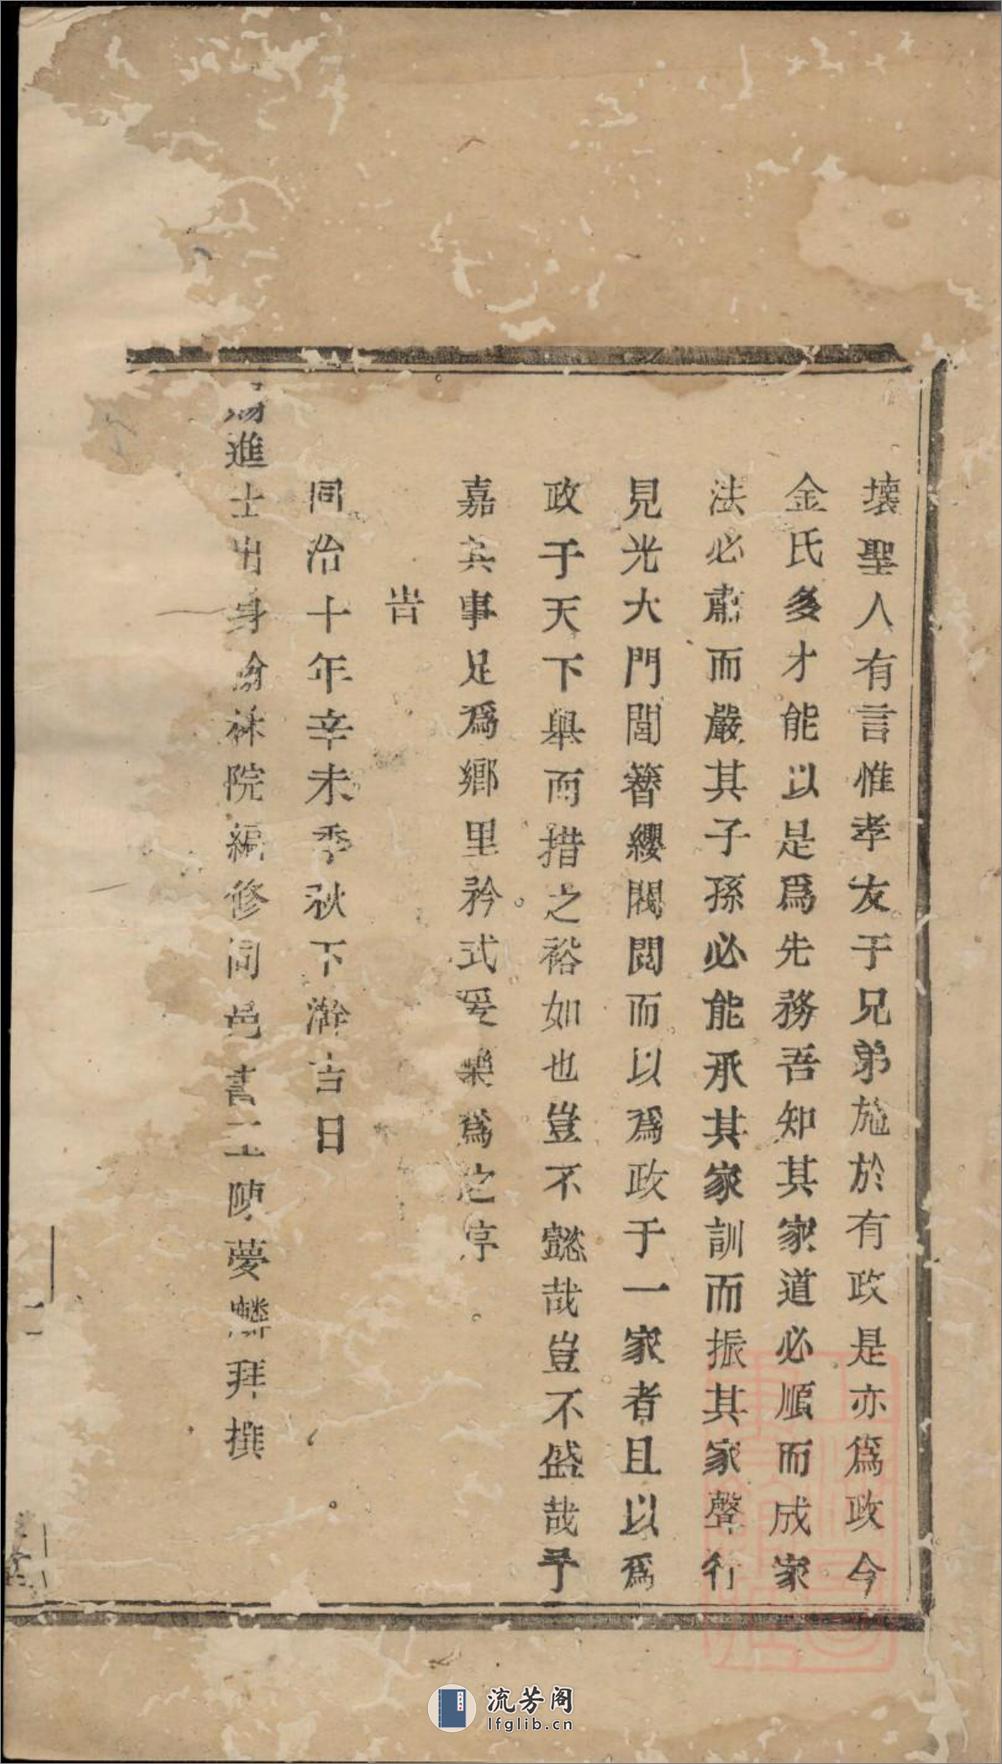 壞聖人有言惟孝友于兄弟施於有政是亦爲政今
金氏多才能以是爲先務吾知其家道必順而成家
法必肅而嚴其子孫必能承其家訓而振其家聲行
見光大門閭簪纓閥閱而以爲政于一家者且以爲
政于天下舉而措之裕如也豈不懿哉豈不盛哉予
嘉其事足爲鄉里矜式爰樂爲之序
旹
同治十年辛未季秋下澣吉日
賜進士出身翰林院編修同邑書工陳夢麟拜撰
流芳阁
lfglib.cn